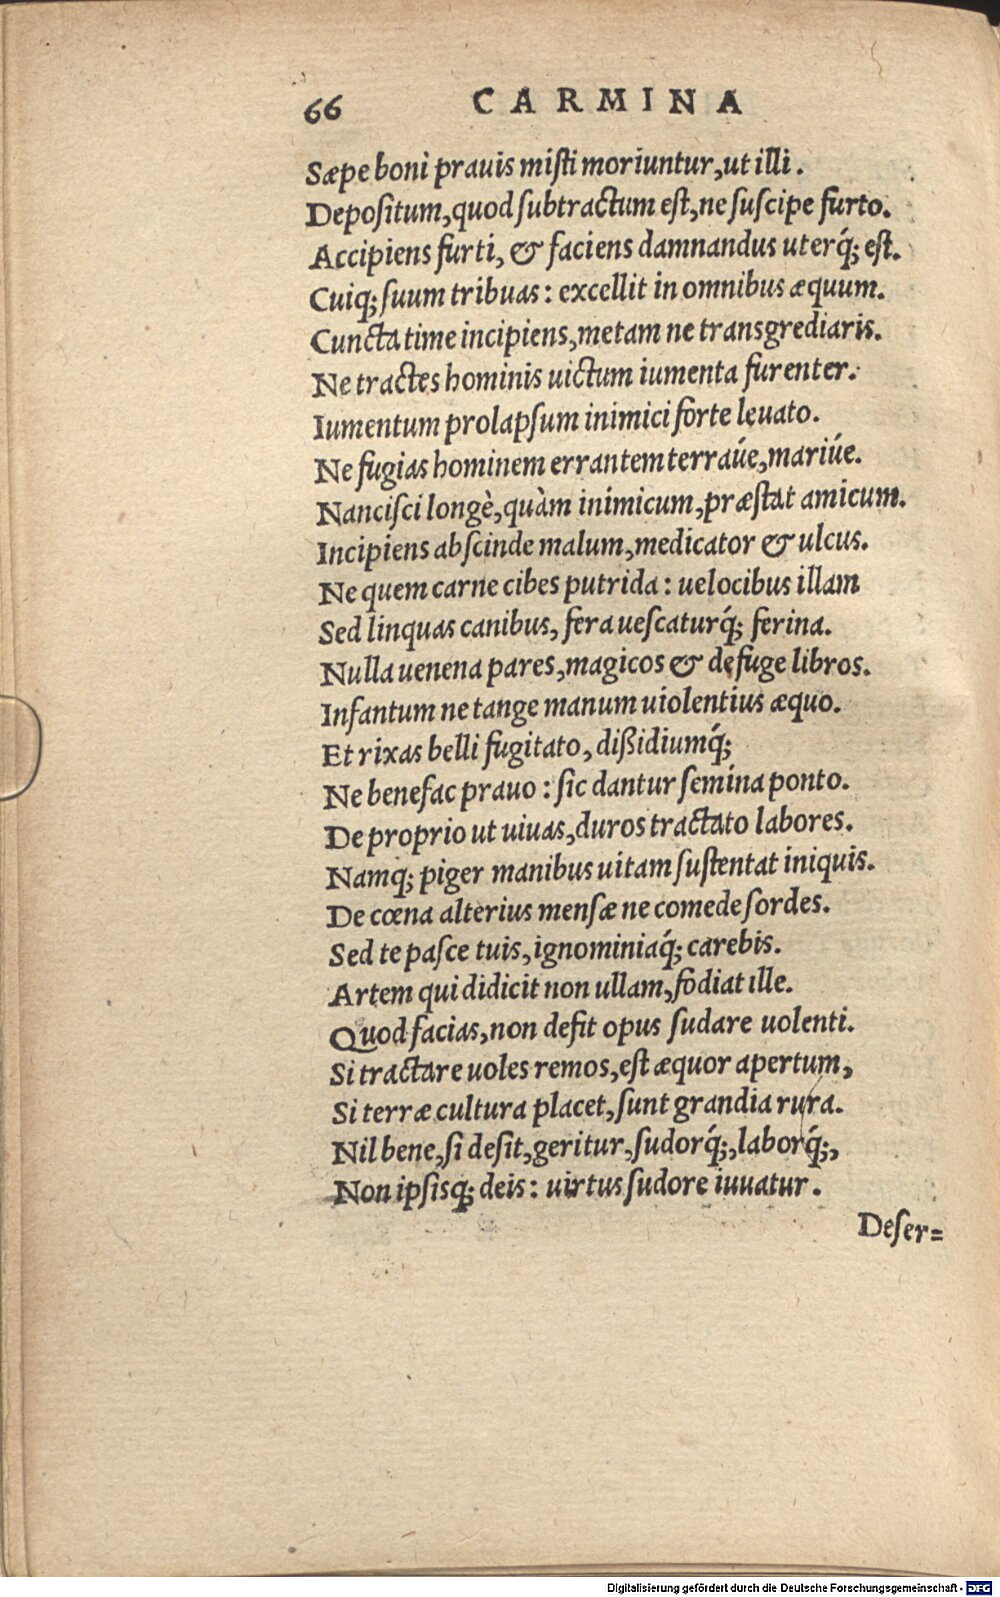 66 CARMINA
Sæpe boni prauis misti moriuntur, ut illi.
Depositum, quod subtractum est, ne suscipe furto.
Accipiens furti, & faciens damnandus uterq́; est.
Cuiq; suum tribuas: excellit in omnibus æquum.
Cuncta time incipiens, metam ne transgrediaris.
Ne tractes hominis uictum iumenta furenter.
Iumentum prolapsum inimici forte leuato.
Ne fugias hominem errantem terraúe, mariúe.
Nancisci longè, quàm inimicum, præstat amicum.
Incipiens abscinde malum, medicator & ulcus.
Ne quem carne cibes putrida: uelocibus illam
Sed linquas canibus, fera uescaturq́; ferina.
Nulla uenena pares, magicos & defuge libros.
Infantum ne tange manum uiolentius æquo.
Et rixas belli fugitato, dißidiumq́;
Ne benefac prauo: sic dantur semina ponto.
De proprio ut uiuas, duros tractato labores.
Namq; piger manibus uitam sustentat iniquis.
De cœna alterius mensæ ne comede sordes.
Sed te pasce tuis, ignominiaq́; carebis.
Artem qui didicit non ullam, fodiat ille.
Quod facias, non defit opus sudare uolenti.
Si tractare uoles remos, est æquor apertum,
Si terræ cultura placet, sunt grandia rura.
Nil bene, si desit, geritur, sudorq́;, laborq́;,
Non ipsisq; deis: uirtus sudore iuuatur.
Deser=
Digitalisierung gefördert durch die Deutsche Forschungsgemeinschaft - DFG